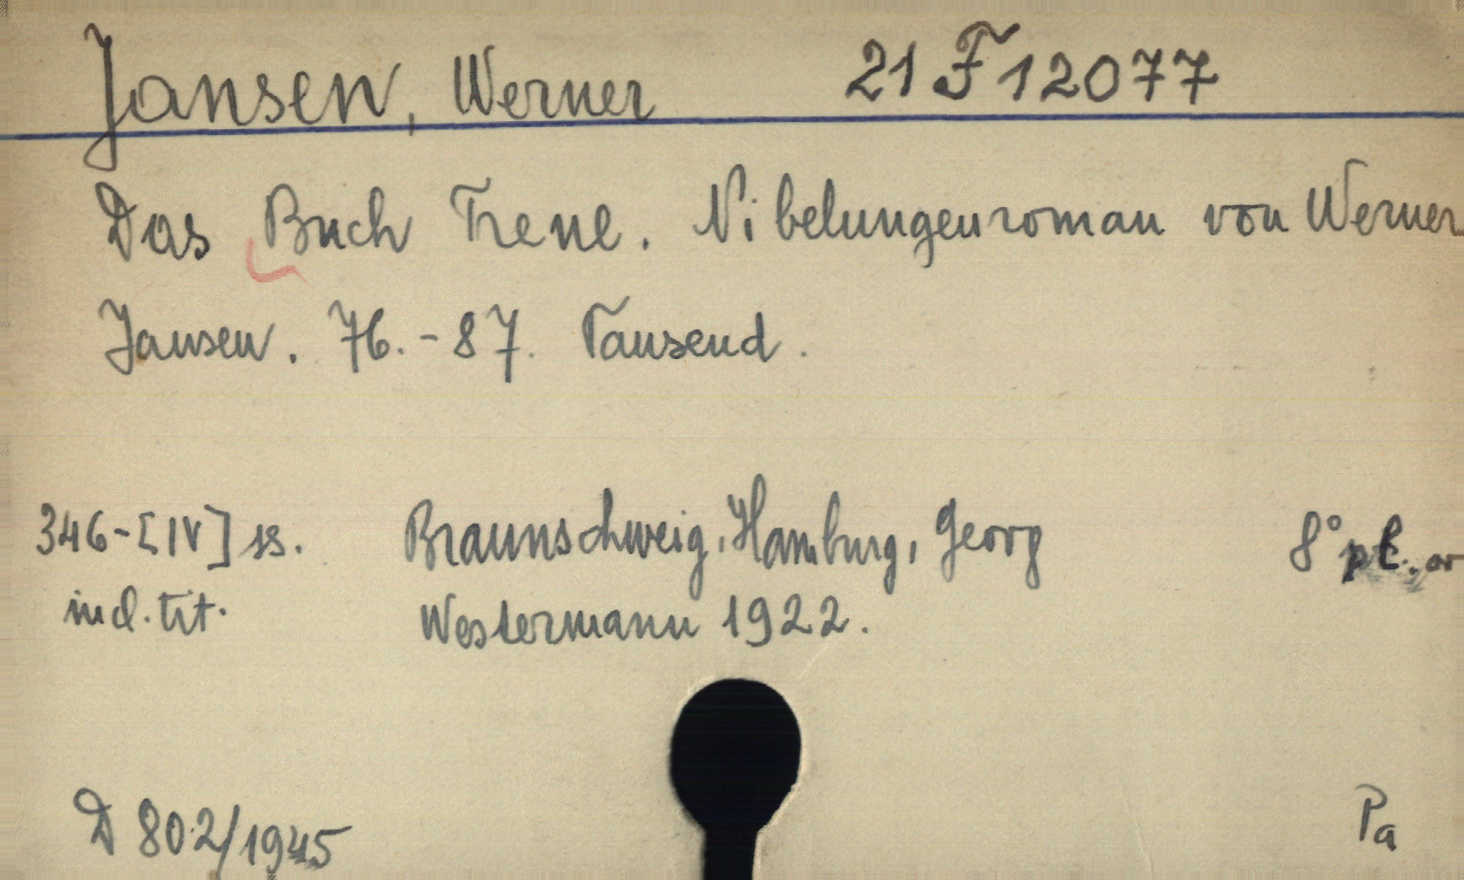 Jansen, Werner 21 F 12077
Das Buch Treue. Nibelungenroman von Werner
Jansen. 76.-87. Tausend.
346-[IV] ss. Braunschweig, Hamburg, Georg 8° pt. or
incl. tit. Westermann 1922.
D 802/1945 Pa